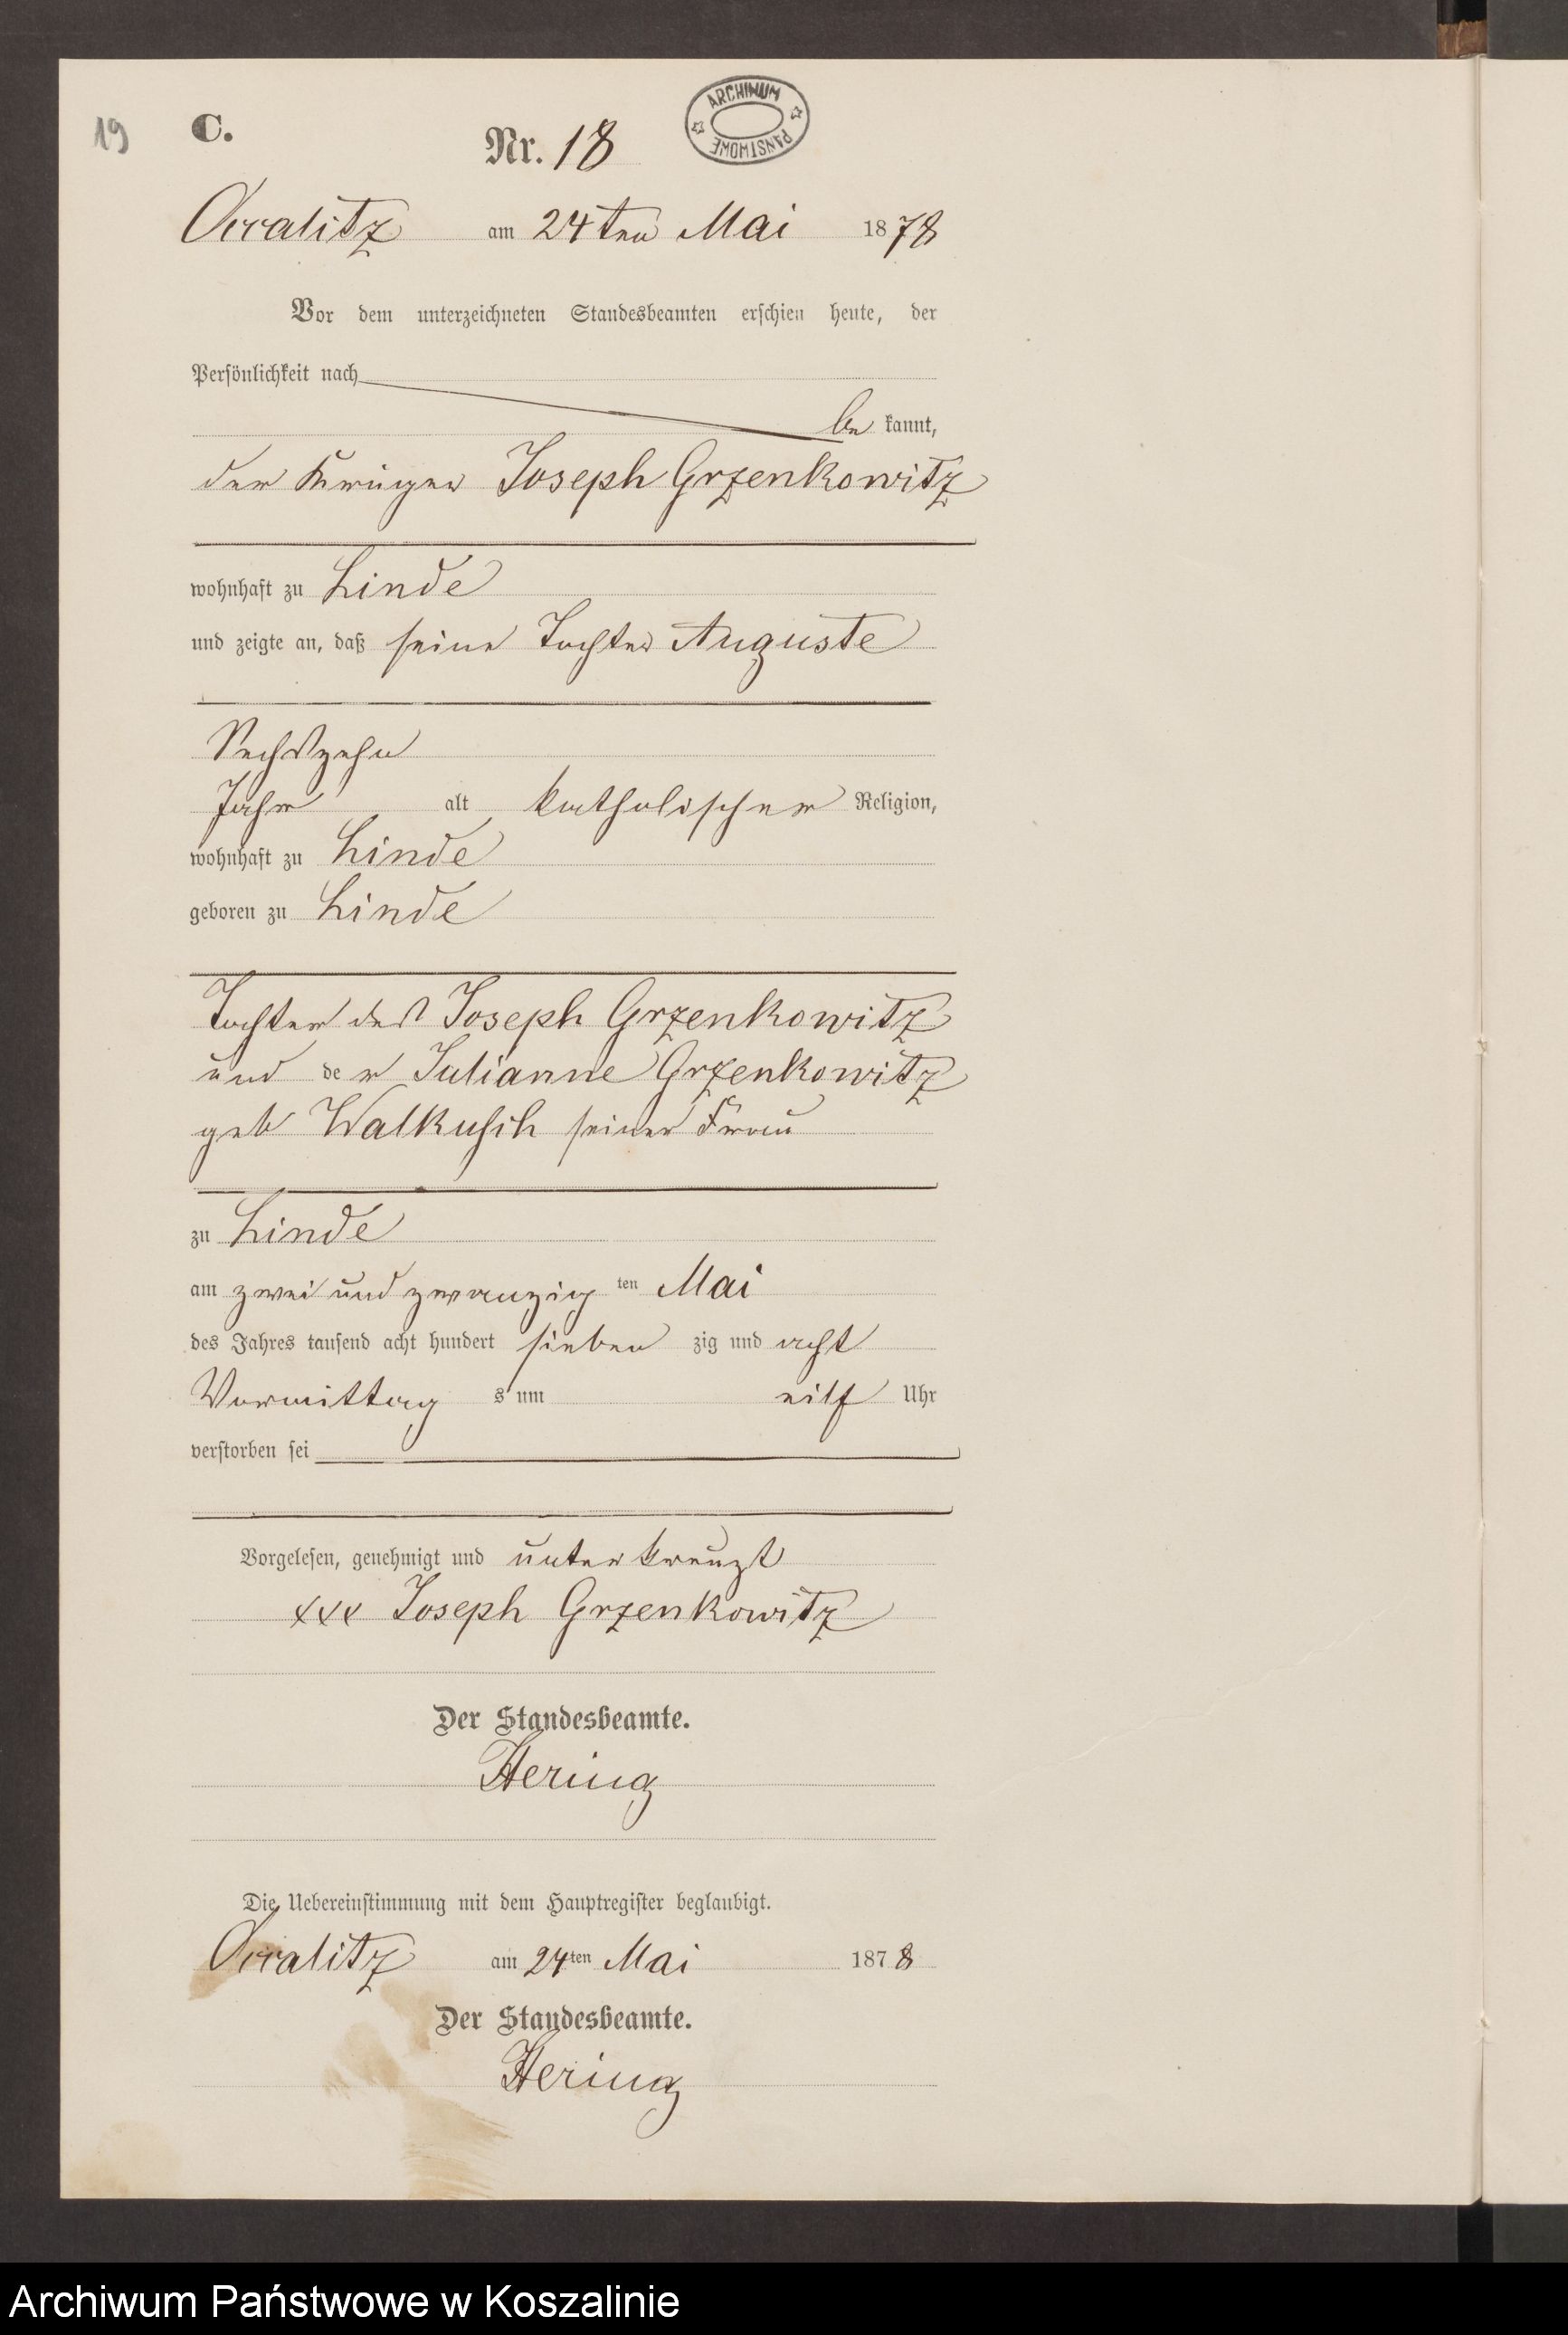 19
C.
Nr. 18
ARCHIWUM PAŃSTWOWE
Occalitz am 24ten Mai 1878
Vor dem unterzeichneten Standesbeamten erschien heute, der
Persönlichkeit nach
be kannt,
der Krüger Joseph Grzenkowitz
wohnhaft zu Linde
und zeigte an, daß seine Tochter Auguste
Sechszehn
Jahr alt katholischer Religion,
wohnhaft zu Linde
geboren zu Linde
Tochter des Joseph Grzenkowitz
und der Julianne Grzenkowitz
geb Walkusch seiner Frau
zu Linde
am zwei und zwanzig ten Mai
des Jahres tausend acht hundert sieben zig und acht
Vormittag s um eilf Uhr
verstorben sei
Vorgelesen, genehmigt und unterkreuzt
xxx Joseph Grzenkowitz
Der Standesbeamte.
Hering
Die Uebereinstimmung mit dem Hauptregister beglaubigt.
Occalitz am 24ten Mai 1878
Der Standesbeamte.
Hering
Archiwum Państwowe w Koszalinie